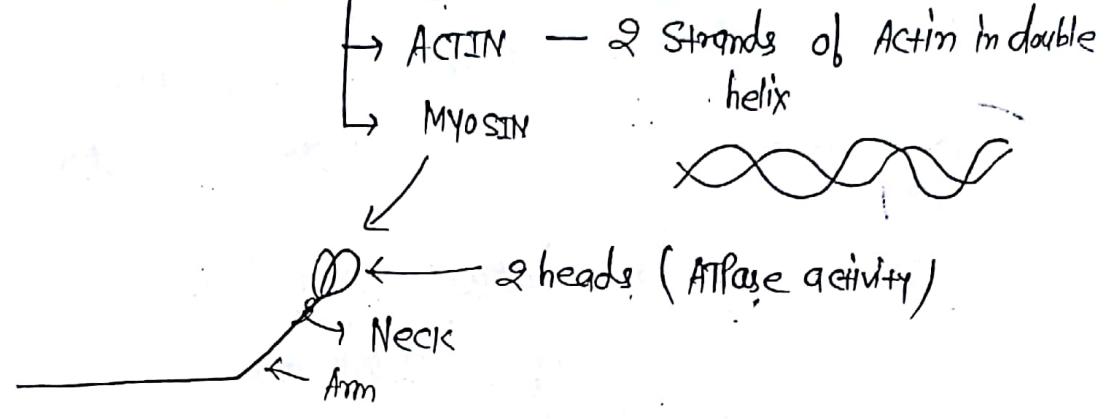 → ACTIN — 2 Strands of Actin in double
helix
→ MYOSIN
← 2 heads (ATPase activity)
→ Neck
← Arm